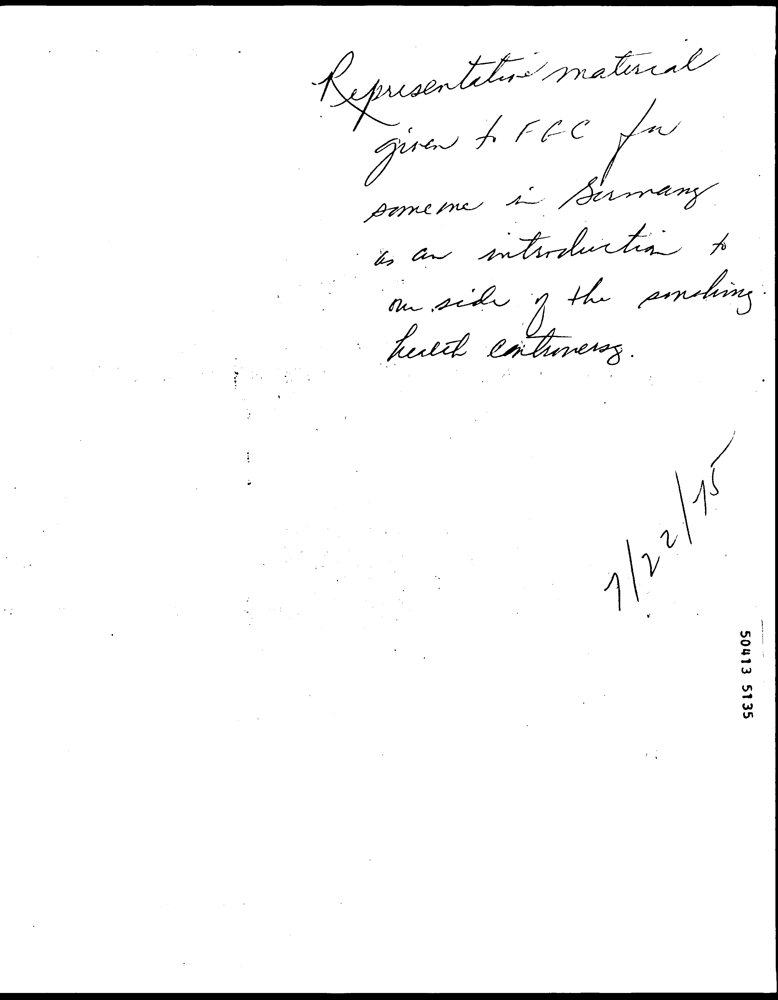 Representative material
given to FGC for
someone in Germany
as an introduction to
our side of the smoking
health controversy.
7/22/75
50413 5135